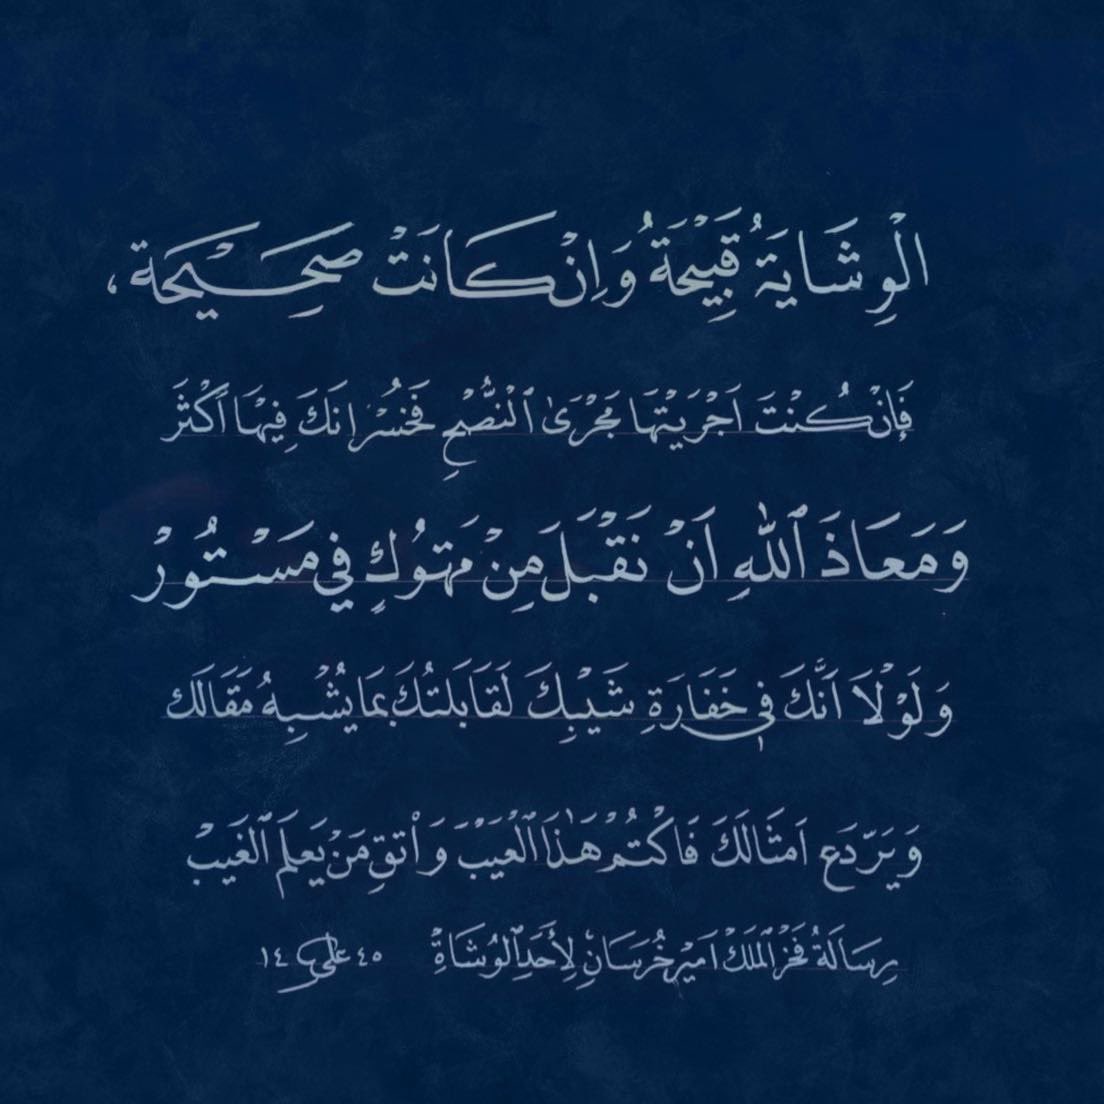 الْوِشَايَةُ قَبِيْحَةٌ وَاِنْ كَانَتْ صَحِيْحَة،
فَإنْ كُنْتَ اَجْرَيْتَهَا مَجْرَىٰ النُّصْحِ فَخُسْرَانكَ فِيْهَا اَكْثَر
وَمَعَاذَ اللهِ اَنْ نَقْبَلَ مِنْ مَهتُوكٍ فِي مَسْتُورْ
وَلَوْلَا اَنَّكَ فِي خَفَارَةِ شَيْبِكَ لَقَابَلتُكَ بِمَا يُشْبِهُ مَقَالَك
وَيَرْدَع اَمثَالَكَ فَاكْتُمْ هَذَا الْعَيْبَ وَاْتقِ مَنْ يَعلَم الغَيبْ
رِسَالَةُ فَخرْ المَلَكْ اَمِيرْ خُرَسَان لِأَحَدِ الوُشَاةِ ٤٥ علي ١٤